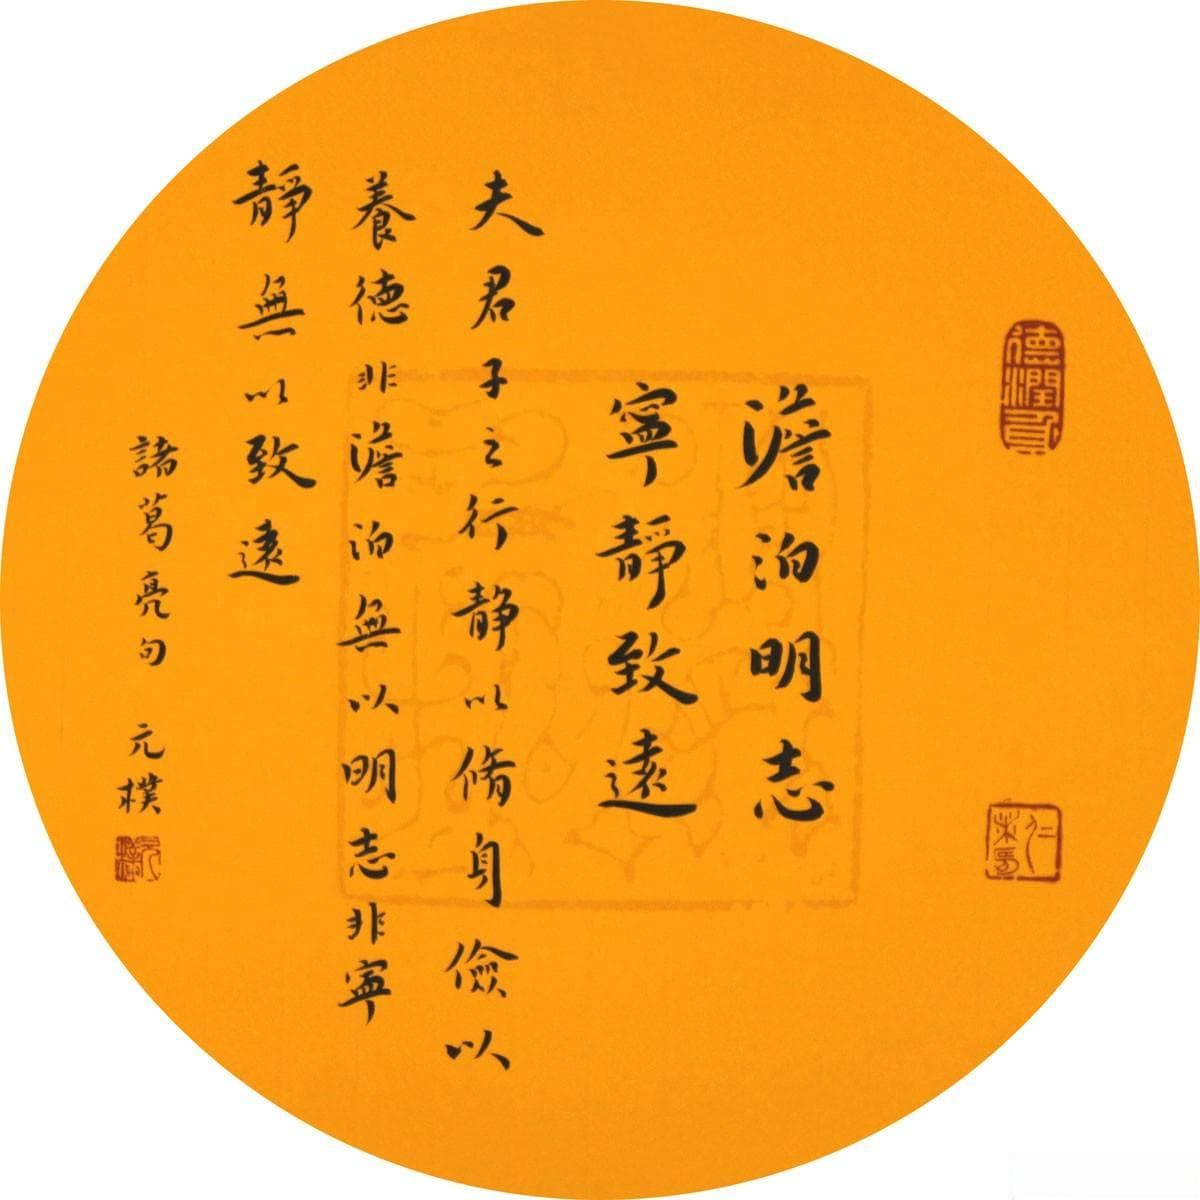 德潤身
澹泊明志
寧靜致遠
夫君子之行静以脩身儉以
養德非澹泊無以明志非寧
靜無以致遠
諸葛亮句 元樸